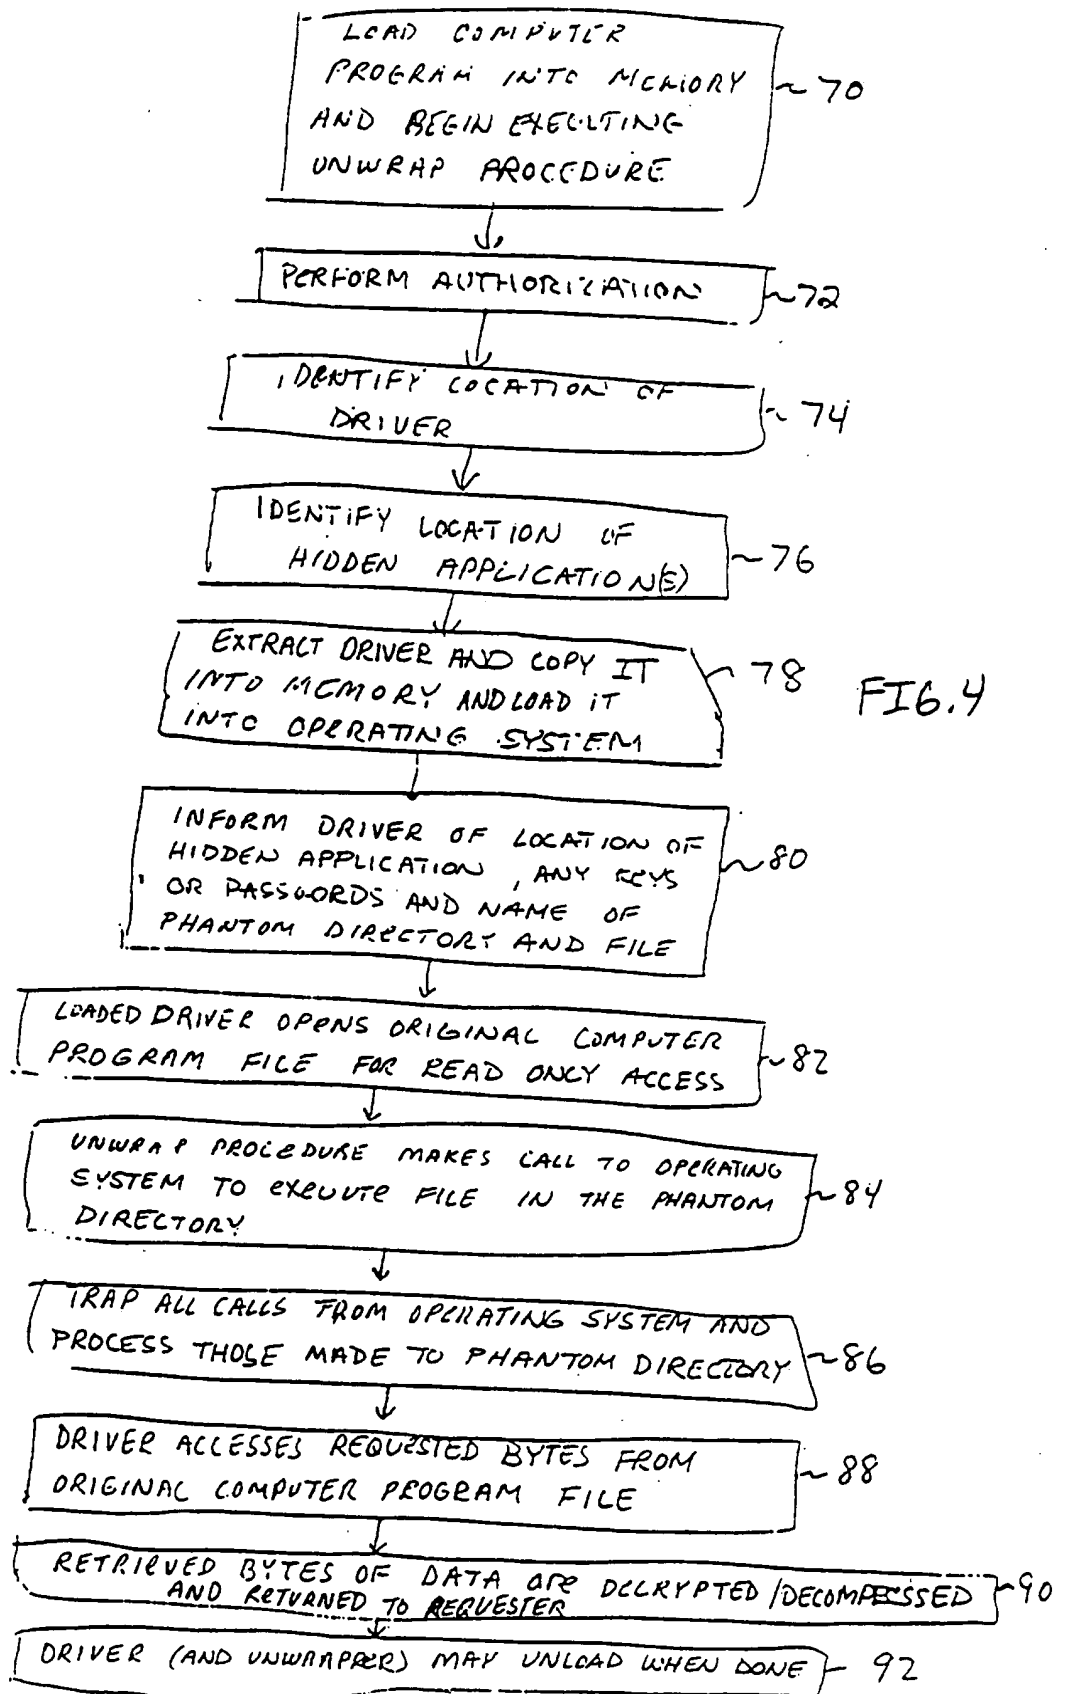 LOAD COMPUTER
PROGRAM INTO MEMORY
AND BEGIN EXECUTING
UNWRAP PROCEDURE
70
PERFORM AUTHORIZATION
72
IDENTIFY LOCATION OF
DRIVER
74
IDENTIFY LOCATION OF
HIDDEN APPLICATION(S)
76
EXTRACT DRIVER AND COPY IT
INTO MEMORY AND LOAD IT
INTO OPERATING SYSTEM
78
FIG. 4
INFORM DRIVER OF LOCATION OF
HIDDEN APPLICATION, ANY KEYS
OR PASSWORDS AND NAME OF
PHANTOM DIRECTORY AND FILE
80
LOADED DRIVER OPENS ORIGINAL COMPUTER
PROGRAM FILE FOR READ ONLY ACCESS
82
UNWRAP PROCEDURE MAKES CALL TO OPERATING
SYSTEM TO EXECUTE FILE IN THE PHANTOM
DIRECTORY
84
TRAP ALL CALLS FROM OPERATING SYSTEM AND
PROCESS THOSE MADE TO PHANTOM DIRECTORY
86
DRIVER ACCESSES REQUESTED BYTES FROM
ORIGINAL COMPUTER PROGRAM FILE
88
RETRIEVED BYTES OF DATA ARE DECRYPTED/DECOMPESSED
AND RETURNED TO REQUESTER
90
DRIVER (AND UNWRAPPER) MAY UNLOAD WHEN DONE
92